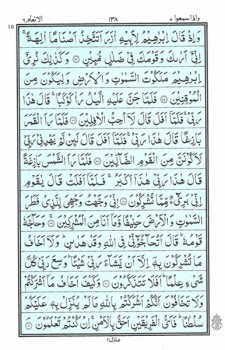 واذا سمعوا ٧ ١٣٨ الانعام ٦
وَإِذْ قَالَ إِبْرٰهِيْمُ لِأَبِيْهِ اٰزَرَ أَتَتَّخِذُ أَصْنَامًا اٰلِهَةً ۚ
إِنِّيْٓ أَرٰىكَ وَقَوْمَكَ فِيْ ضَلٰلٍ مُّبِيْنٍ ۝ وَكَذٰلِكَ نُرِيْٓ
إِبْرٰهِيْمَ مَلَكُوْتَ السَّمٰوٰتِ وَالْأَرْضِ وَلِيَكُوْنَ مِنَ
الْمُوْقِنِيْنَ ۝ فَلَمَّا جَنَّ عَلَيْهِ الَّيْلُ رَاٰ كَوْكَبًا ۚ قَالَ
هٰذَا رَبِّيْ ۚ فَلَمَّآ أَفَلَ قَالَ لَآ أُحِبُّ الْاٰفِلِيْنَ ۝ فَلَمَّا رَاَ الْقَمَرَ بَازِغًا
قَالَ هٰذَا رَبِّيْ ۚ فَلَمَّآ أَفَلَ قَالَ لَئِنْ لَّمْ يَهْدِنِيْ رَبِّيْ
لَأَكُوْنَنَّ مِنَ الْقَوْمِ الضَّآلِّيْنَ ۝ فَلَمَّا رَاَ الشَّمْسَ بَازِغَةً
قَالَ هٰذَا رَبِّيْ هٰذَآ أَكْبَرُ ۚ فَلَمَّآ أَفَلَتْ قَالَ يٰقَوْمِ
إِنِّيْ بَرِيْٓءٌ مِّمَّا تُشْرِكُوْنَ ۝ إِنِّيْ وَجَّهْتُ وَجْهِيَ لِلَّذِيْ فَطَرَ
السَّمٰوٰتِ وَالْأَرْضَ حَنِيْفًا وَّمَآ أَنَا مِنَ الْمُشْرِكِيْنَ ۝ وَحَآجَّهٗ
قَوْمُهٗ ۚ قَالَ أَتُحَآجُّوْٓنِّيْ فِي اللّٰهِ وَقَدْ هَدٰىنِ ۚ وَلَآ أَخَافُ
مَا تُشْرِكُوْنَ بِهٖٓ إِلَّآ أَنْ يَّشَآءَ رَبِّيْ شَيْئًا ۗ وَسِعَ رَبِّيْ كُلَّ
شَيْءٍ عِلْمًا ۗ أَفَلَا تَتَذَكَّرُوْنَ ۝ وَكَيْفَ أَخَافُ مَآ أَشْرَكْتُمْ
وَلَا تَخَافُوْنَ أَنَّكُمْ أَشْرَكْتُمْ بِاللّٰهِ مَا لَمْ يُنَزِّلْ بِهٖ عَلَيْكُمْ
سُلْطٰنًا ۚ فَأَيُّ الْفَرِيْقَيْنِ أَحَقُّ بِالْأَمْنِ ۚ إِنْ كُنْتُمْ تَعْلَمُوْنَ ۝